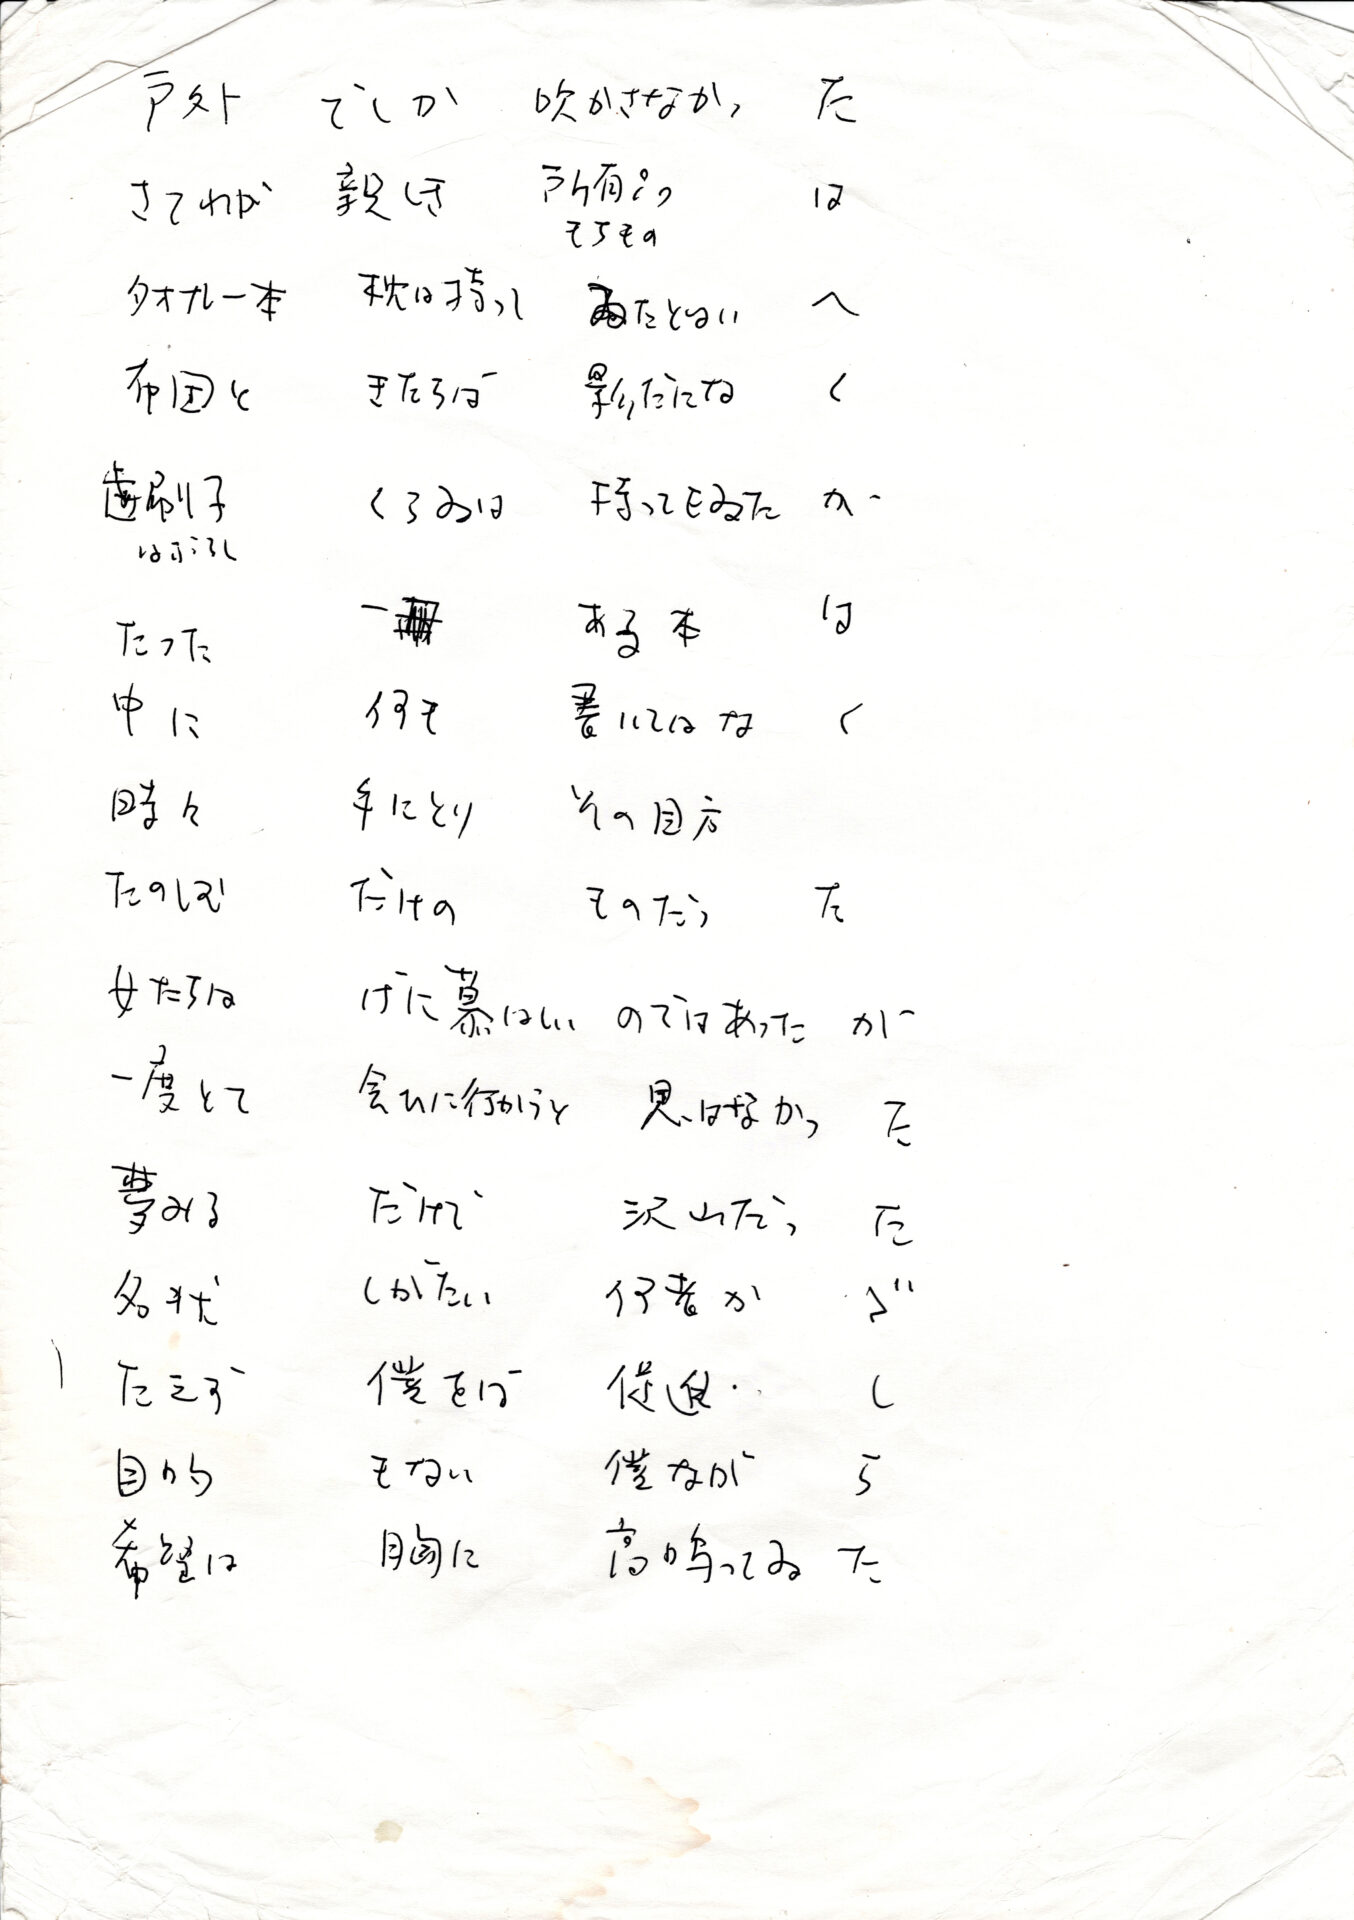 戸外 でしか 吹かさなかつ た
さてわが 親しき 所有つ は
もちもの
タオル一本 枕は持つて ゐたとはい へ
布団と きたらば 影だになく
歯刷子 くらゐは 持つてもゐたが
はぶらし
たつた 一冊 ある本 は
中に 何も 書いてはな く
時々 手にとり その目方
たのしむ だけの ものだつ た
女たちは げに慕はしい のではあつた が
一度とて 会ひに行かうと 思はなかつ た
夢みる だけで 沢山だつ た
名状 しがたい 何者か が
たえず 僕をば 促進 し
目的 もない 僕なが ら
希望は 胸に 高鳴つてゐ た